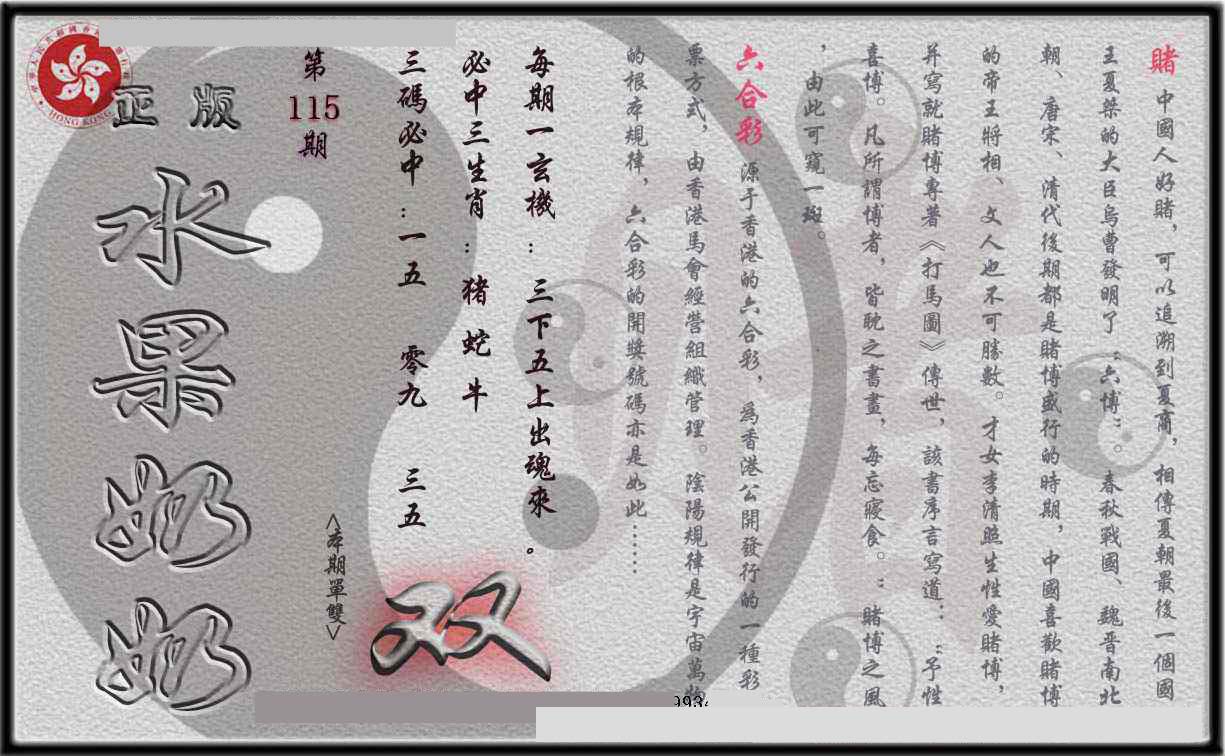 賭 中國人好賭，可以追溯到夏商，相傳夏朝最後一個國
王夏桀的大臣烏曹發明了“六博”。春秋戰國、魏晋南北
朝、唐宋、清代後期都是賭博盛行的時期，中國喜歡賭博
的帝王將相、文人也不可勝數。才女李清照生性愛賭博，
并寫就賭博專著《打馬圖》傳世，該書序言寫道：“予性
喜博。凡所謂博者，皆耽之書畫，每忘寢食。”賭博之風
，由此可窺一斑。
六合彩 源于香港的六合彩，爲香港公開發行的一種彩
票方式，由香港馬會經營組織管理。陰陽規律是宇宙萬物
的根本規律，六合彩的開獎號碼亦是如此……
每期一玄機：三下五上出魂來。
必中三生肖：猪 蛇 牛
三碼必中：一五 零九 三五
第
115
期
<本期單雙>
双
正版
水果奶奶
HONG KONG